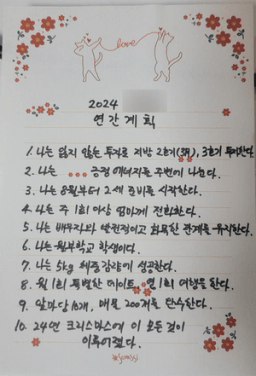 love
2024
연간계획
1. 나는 잃지 않는 투자로 지방 2호기(), 3호기 투자한다.
2. 나는 긍정 에너지를 주변에 나눈다.
3. 나는 8월부터 2세 준비를 시작한다.
4. 나는 주 1회 이상 엄마께 전화한다.
5. 나는 배우자와 안정적이고 화목한 관계를 유지한다.
6. 나는 월부학교 학생이다.
7. 나는 5kg 체중감량에 성공한다.
8. 월 1회 특별한 데이트, 연 1회 여행을 한다.
9. 앞마당 10개, 매물 200개를 단수한다.
10. 24년 크리스마스에 이 모든 것이
이루어졌다.